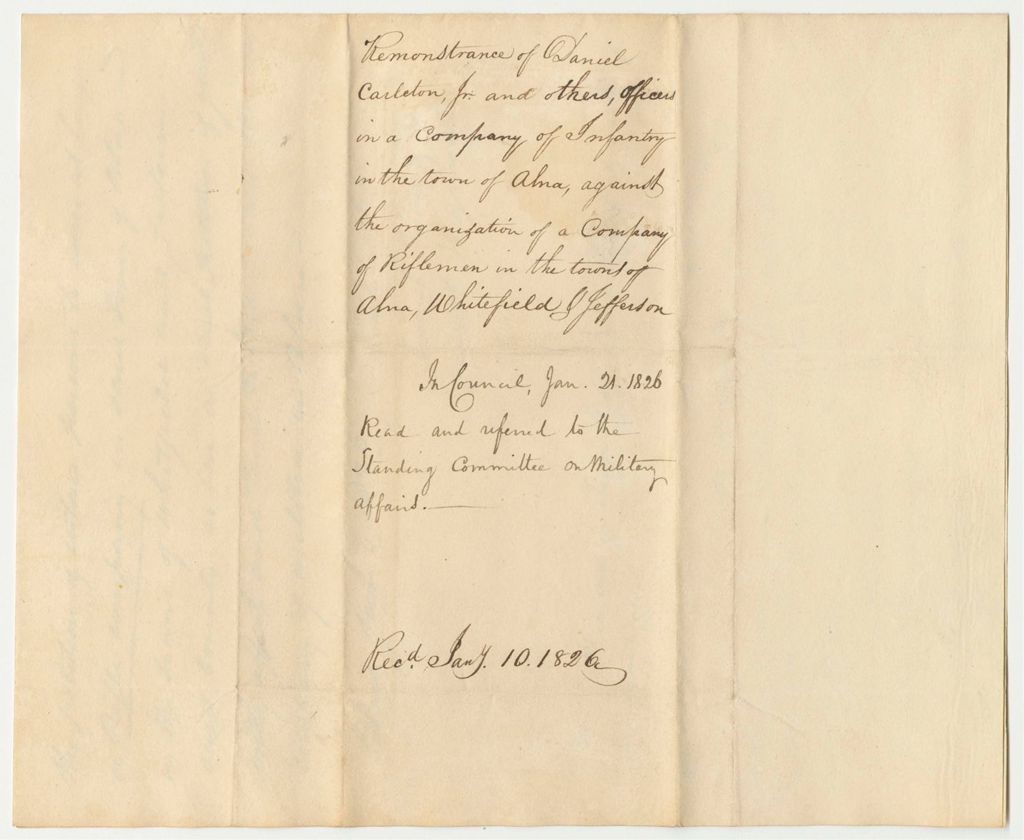 Remonstrance of Daniel
Carleton, Jr. and others, officers
in a Company of Infantry
in the town of Alna, against
the organization of a Company
of Riflemen in the towns of
Alna, Whitefield & Jefferson
In Council, Jan. 21. 1826
Read and referred to the
Standing Committee on Military
affairs.—
Recd. Jany. 10. 1826